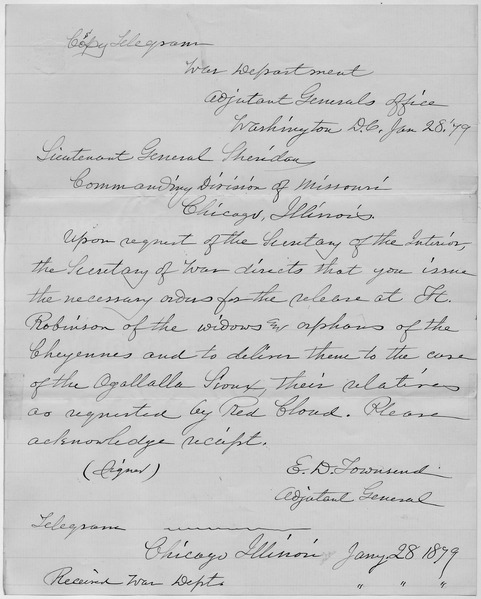 Copy Telegram
War Department
Adjutant Generals Office
Washington D.C. Jan 28. '79
Lieutenant General Sheridan
Commanding Division of Missouri
Chicago, Illinois.
Upon request of the Secretary of the Interior,
the Secretary of War directs that you issue
the necessary orders for the release at Ft.
Robinson of the widows and orphans of the
Cheyennes and to deliver them to the care
of the Ogallalla Sioux, their relatives
as requested by Red Cloud. Please
acknowledge receipt.
(Signed) E. D. Townsend
Adjutant General
Telegram
Chicago Illinois Jany 28 1879
Received War Dept. " " "